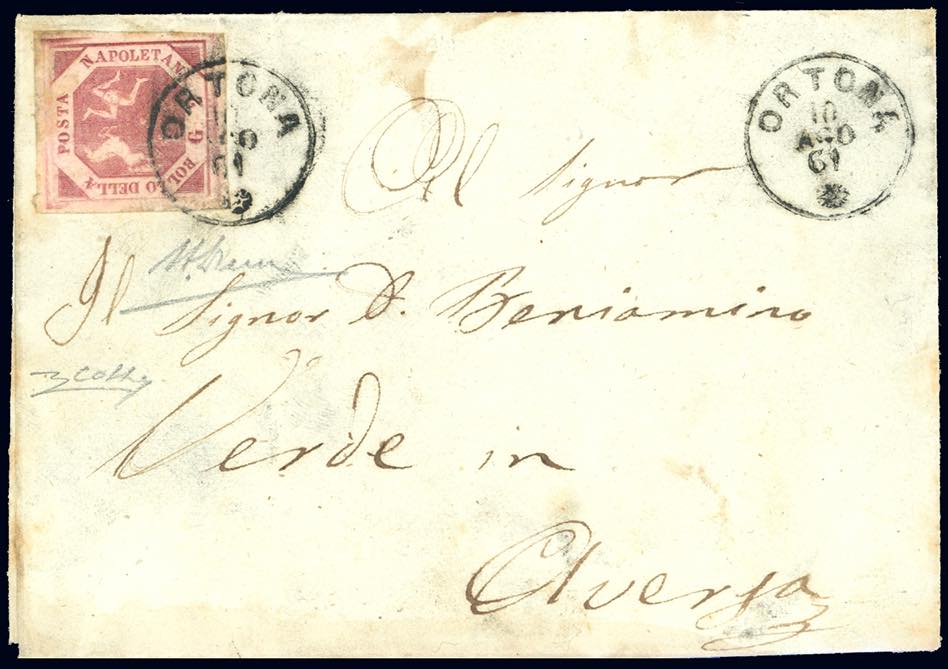 POSTA NAPOLETAN
G BOLLO DELLA
ORTONA
AGO
61
ORTONA
10
AGO
61
Al Signor
Il Signor D. Beniamino
Verde in
Aversa